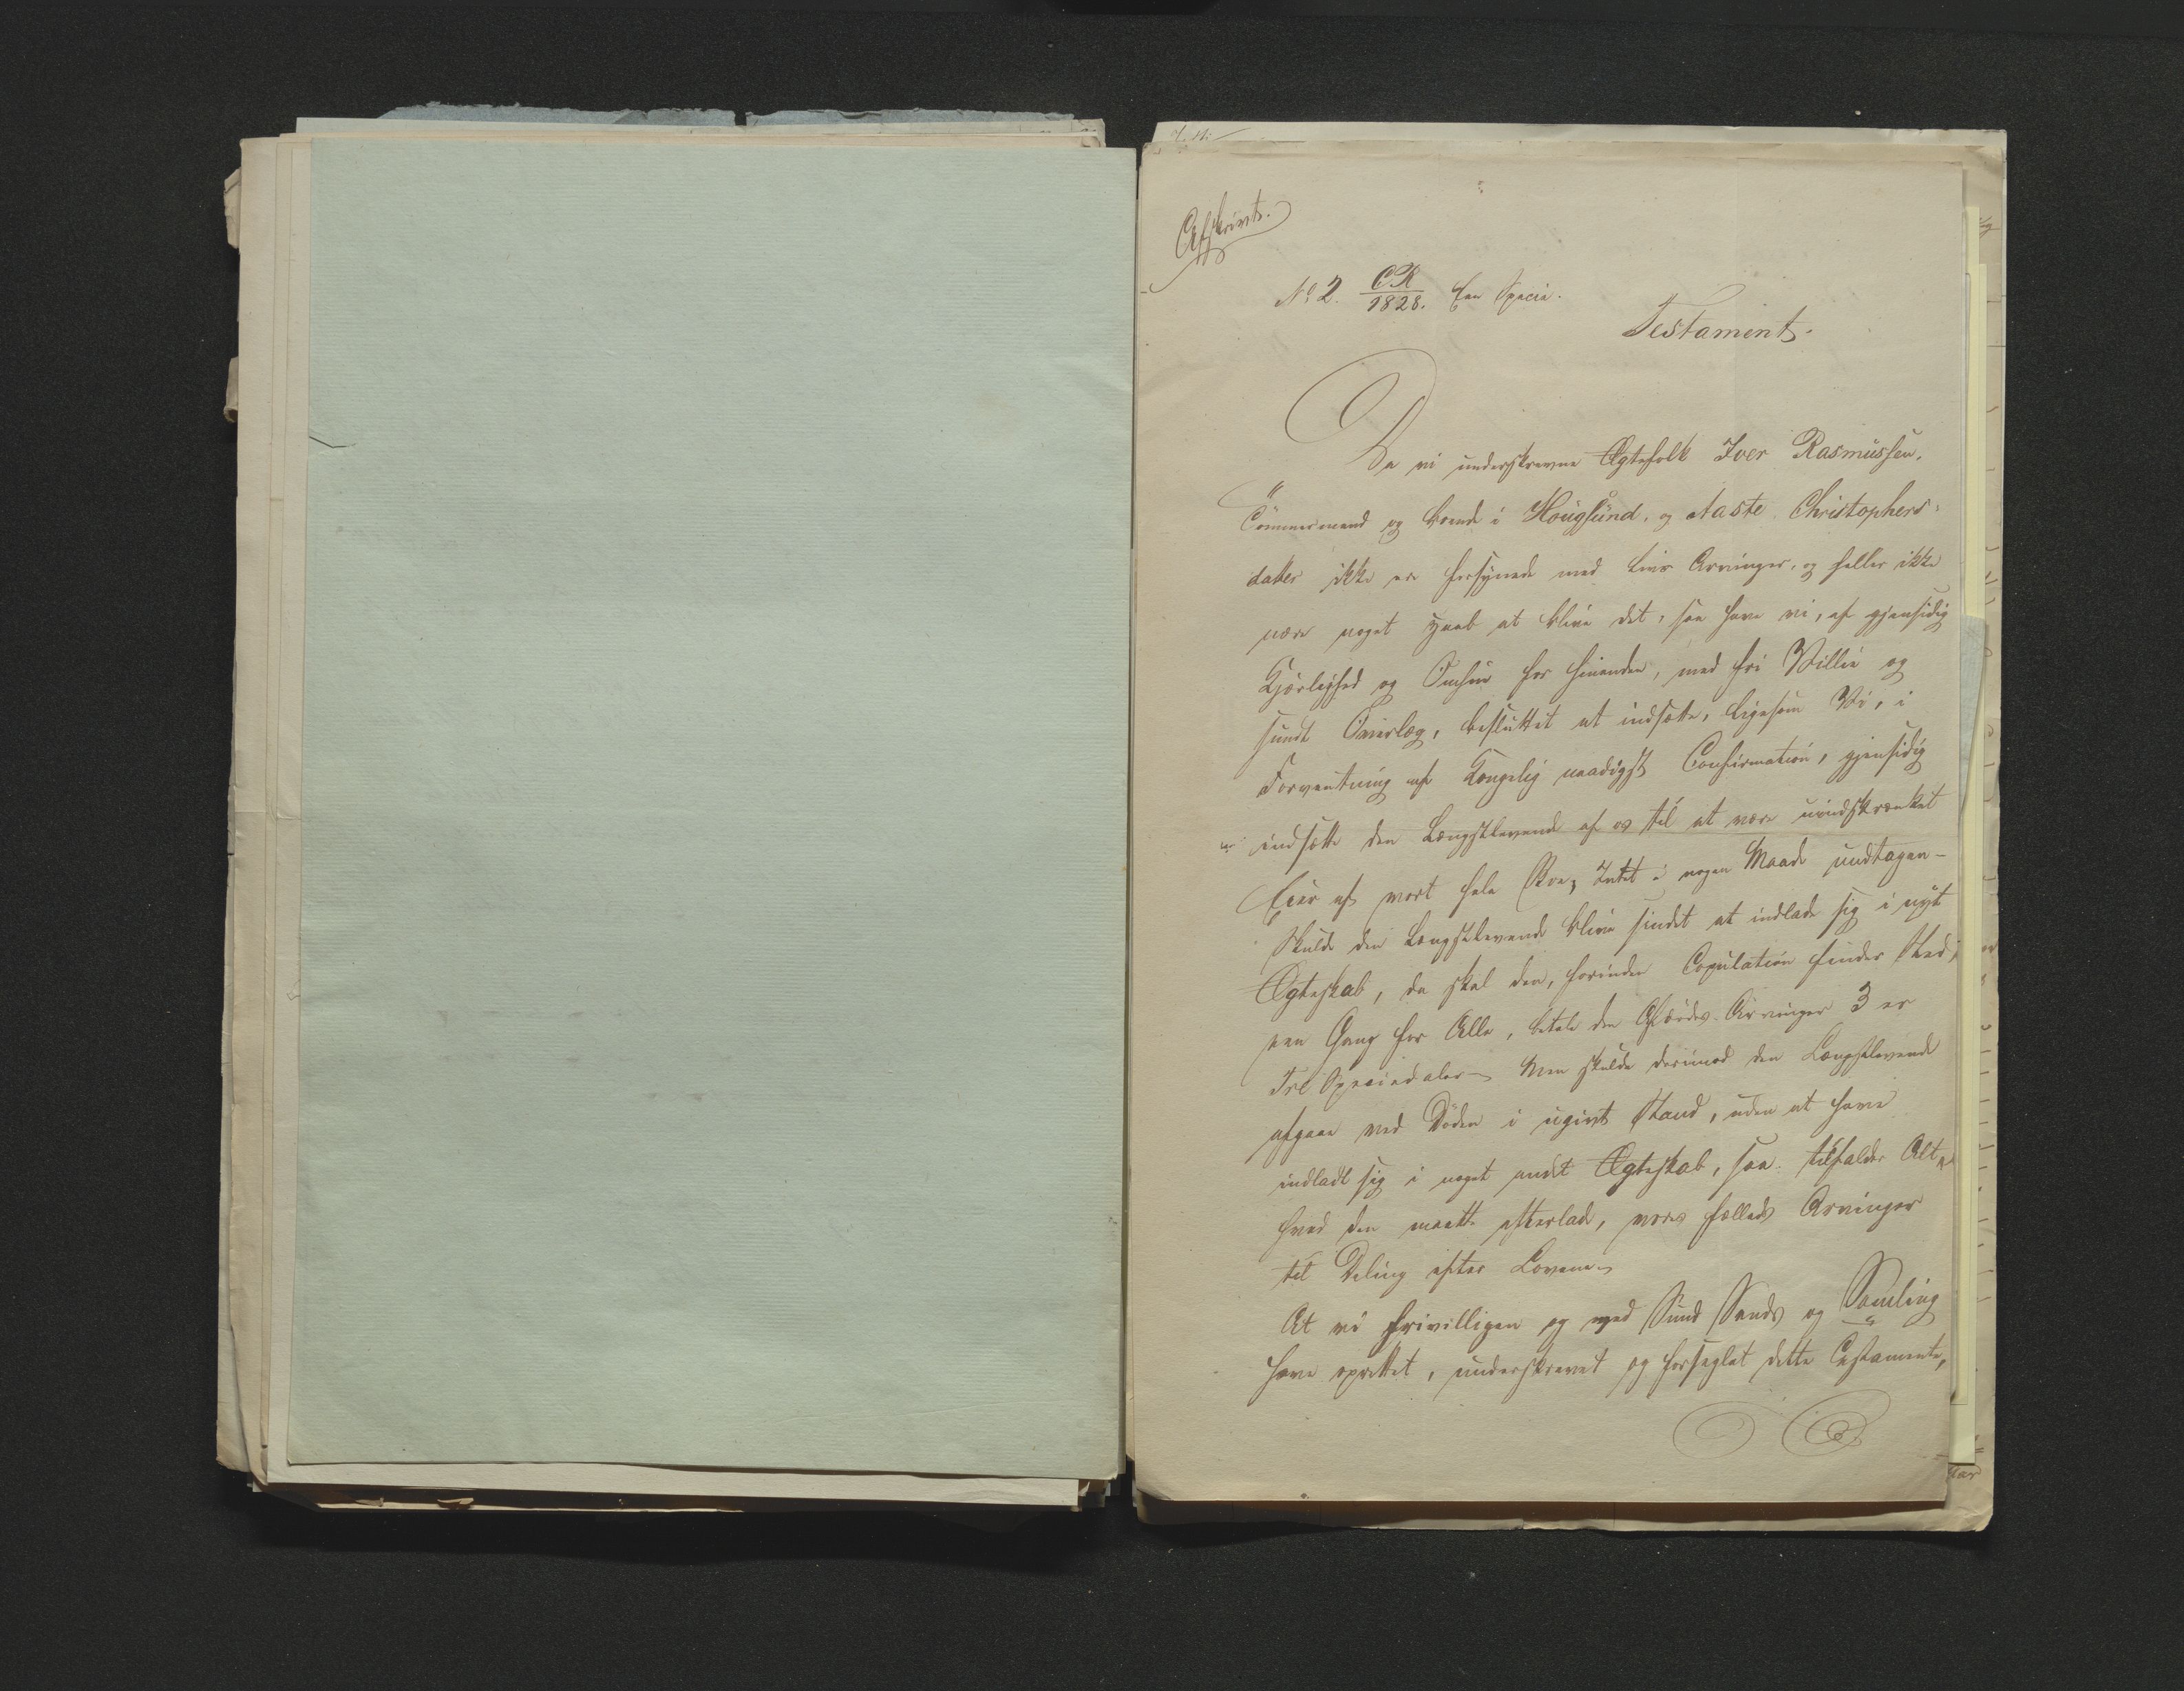 Afskrivt.
No 2. CR
1828. Een Specie.
Testament.
Da vi underskrevne Ægtefolk Iver Rasmussen,
Tömmermand og boende i Hougsund, og Aaste Christophers-
datter ikke ere forsynede med Livs Arvinger, og heller ikke
nære noget Haab at blive det, saa have vi, af gjensidig
Kjærlighed og Omhue for hinanden, med fri Villie og
sundt Overlæg, besluttet at indsætte, ligesom Vi, i
Forventning af Kongelig naadigst Confirmation, gjensidig
indsætte den Længstlevende af os til at være uindskrænket
Eier af vort hele Boe, Intet i nogen Maade undtagen-
Skulde den Længstlevende blive sindet at indlade sig i nyt
Ægteskab, da skal den, forinden Copulation finder Sted,
een Gang for Alle, betale den Afdødes Arvinger 3 er
Tre Speciedaler- Men skulde derimod den Længstlevende
afgaae ved Döden i ugivt Stand, uden at have
indladt sig i noget andet Ægteskab, saa tilfalder Alt,
hvad den maatte efterlade, vores fælleds Arvinger
til Deling efter Lovene-
At vi frivilligen og med Sund Sands og Samling
have oprettet, underskrevet og forseglet dette Testamente,